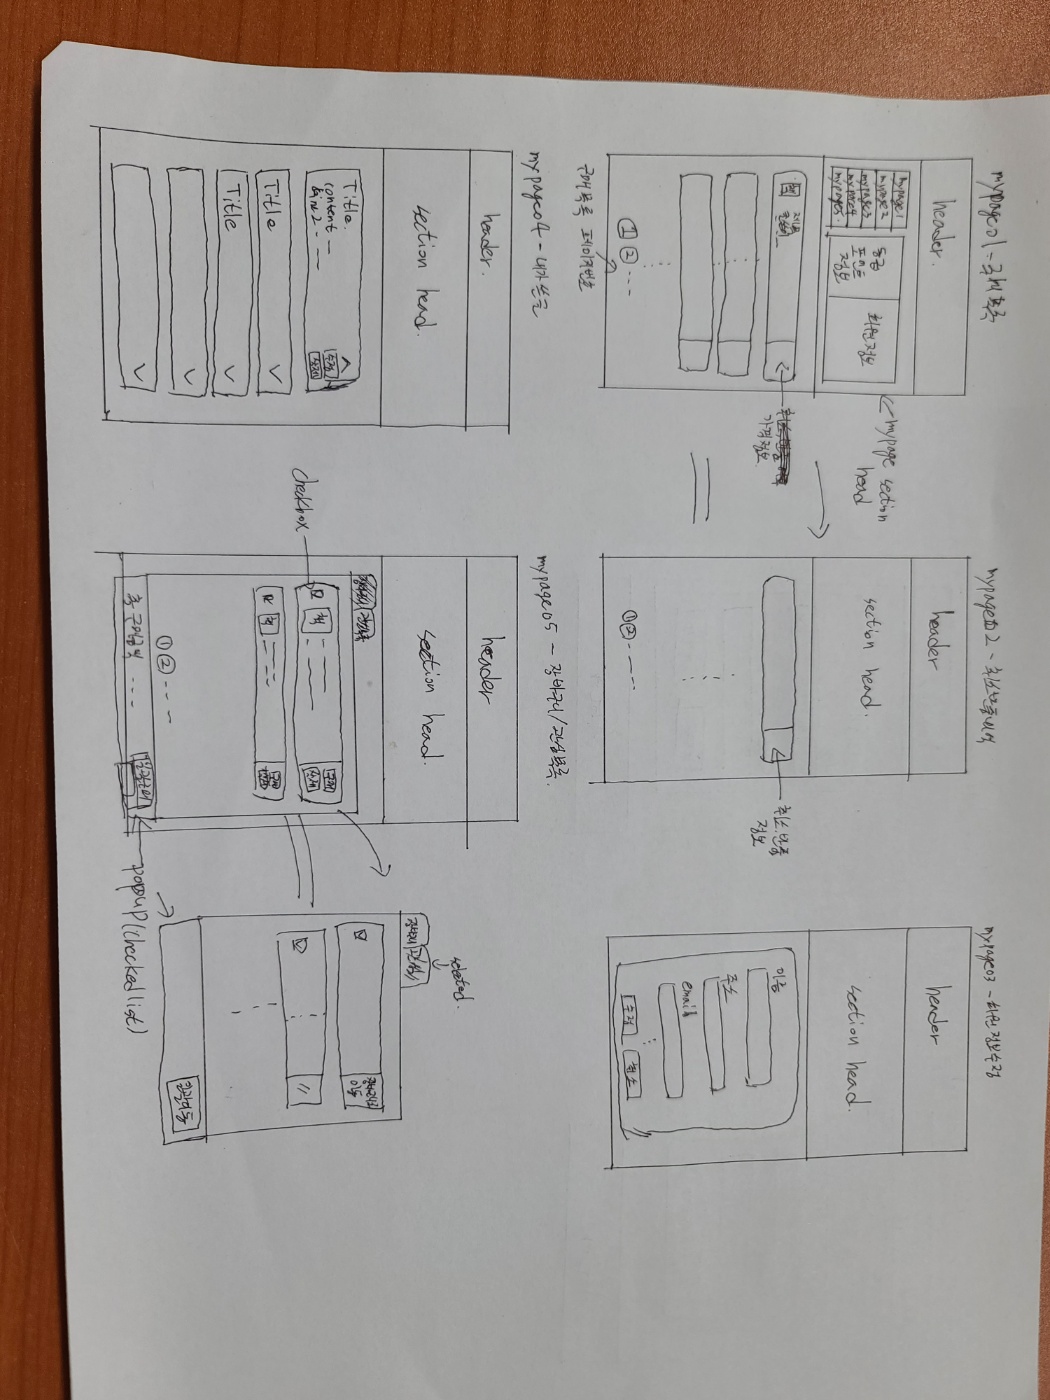 mypage01 - 구매목록
header.
mypage1
mypage2
mypage3
mypage4
mypage5.
등급
포인트
정보
회원정보
mypage section
head
책
제목
가격정보
① ② ...
구매목록 페이지번호
mypage02 - 취소반품내역
header
section head.
취소반품
정보
①② ...
mypage03 - 회원정보수정
header
section head.
이름
주소
email
수정
취소
mypage04 - 내가쓴글
header.
section head.
Title.
content
수정
삭제
Title
Title
mypage05 - 장바구니/관심목록.
header
section head.
checkbox
책
구매
삭제
책
① ② ...
총 구매금액 ...
popup(checked list)
selected.
장바구니
이동